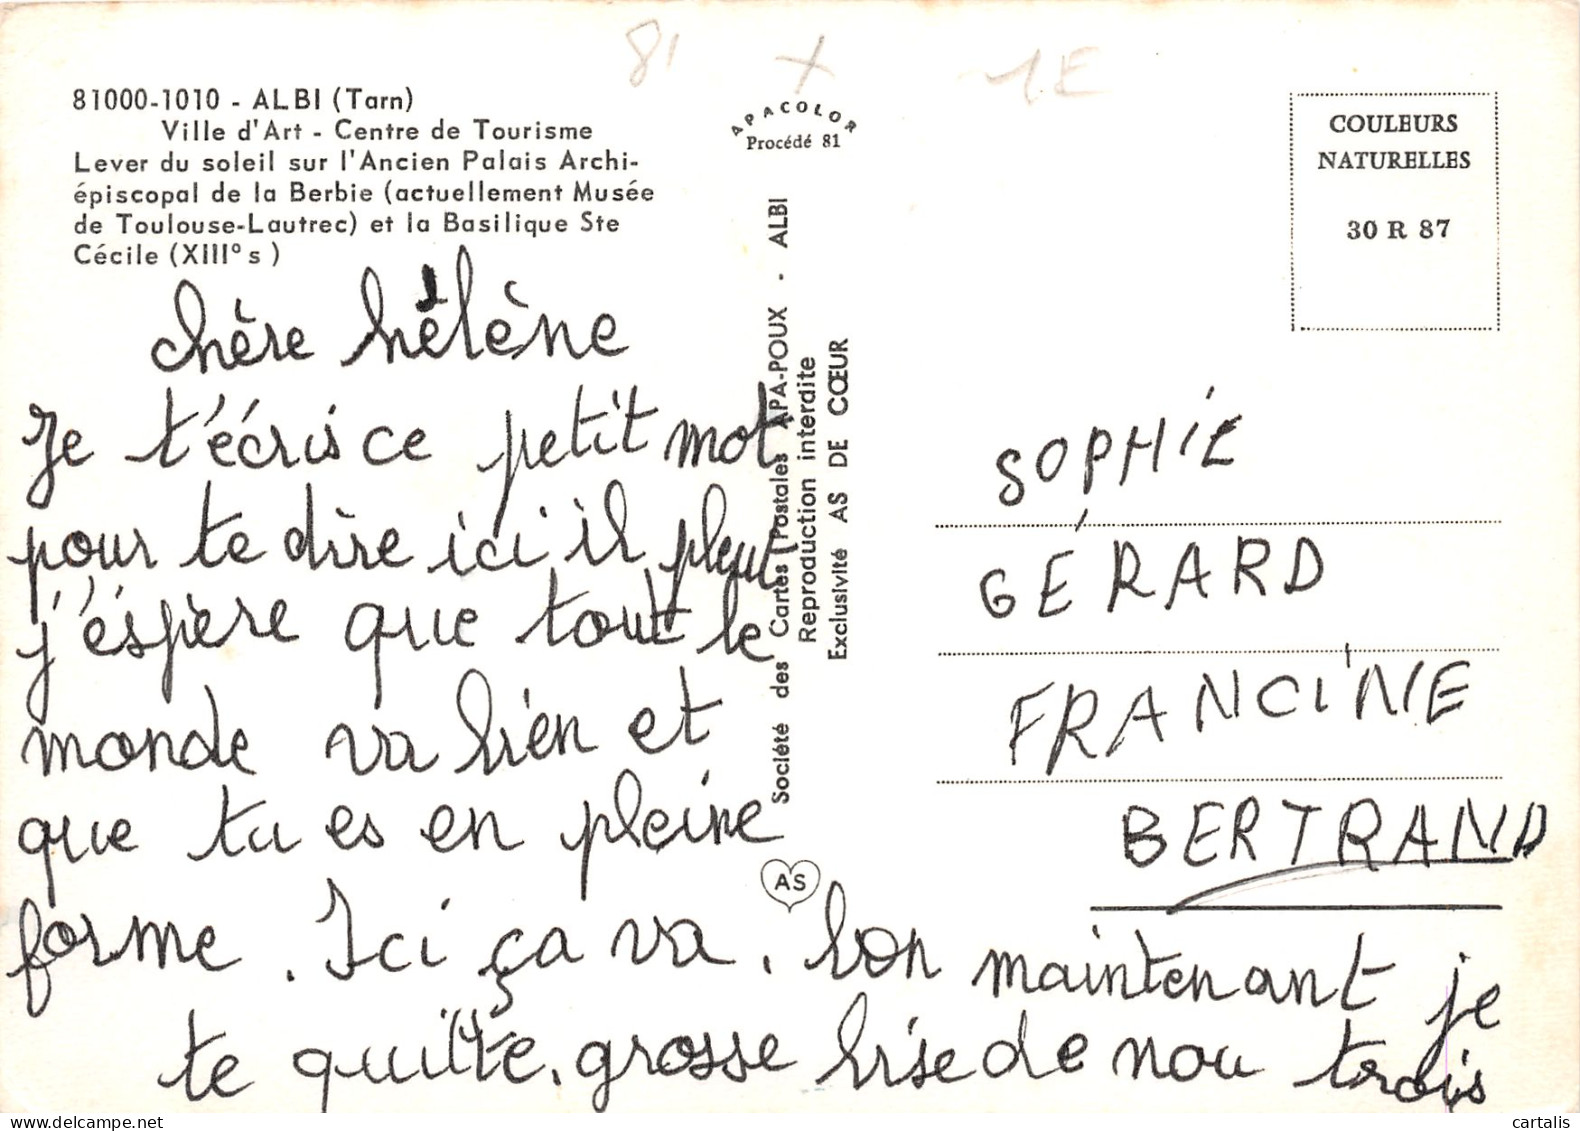 81 X 1E
81000-1010 - ALBI (Tarn)
Ville d'Art - Centre de Tourisme
Lever du soleil sur l'Ancien Palais Archi-
épiscopal de la Berbie (actuellement Musée
de Toulouse-Lautrec) et la Basilique Ste
Cécile (XIII° s )
APACOLOR
Procédé 81
COULEURS
NATURELLES
30 R 87
chère hélène
Je t'écris ce petit mot
pour te dire ici il pleut
j'éspère que tout le
monde va bien et
que tu es en pleine
forme. Ici ça va, bon maintenant je
te quitte, grosse bise de nou trois
Société des Cartes Postales APA-POUX - ALBI
Reproduction interdite
Exclusivité AS DE CŒUR
AS
SOPHIE
GÉRARD
FRANCINE
BERTRAND
cartalis